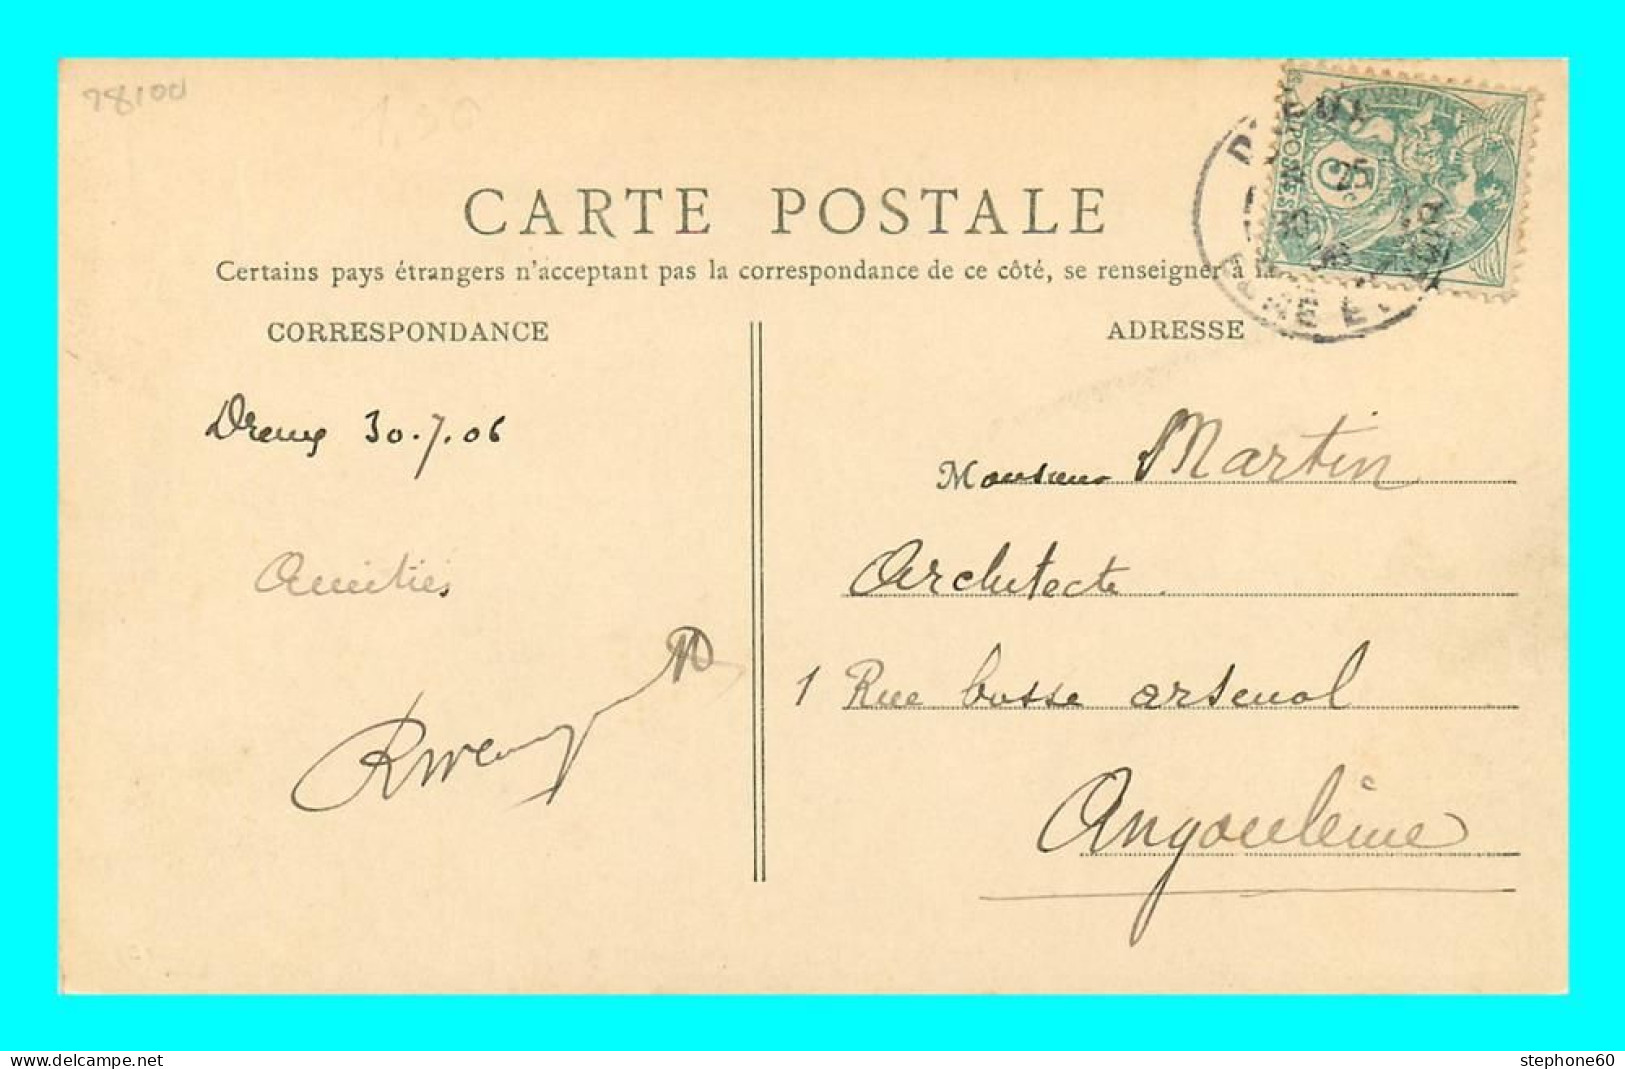 78100
1,30
CARTE POSTALE
Certains pays étrangers n'acceptant pas la correspondance de ce côté, se renseigner à la
CORRESPONDANCE
ADRESSE
Dreux 30.7.06
Amitiés
Monsieur Martin
Architecte.
1 Rue basse arsenal
Angoulême
www.delcampe.net
stephone60